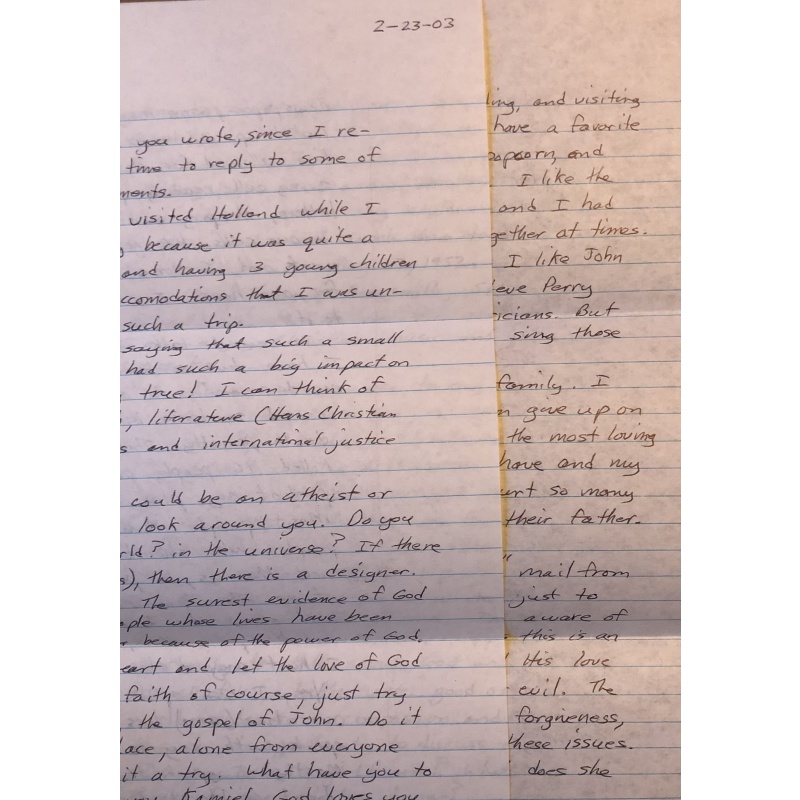 2-23-03
you wrote, since I re-
time to reply to some of
ments.
visited Holland while I
because it was quite a
and having 3 young children
ccomodations that I was un-
such a trip.
saying that such a small
had such a big impact on
true! I can think of
, literature (Hans Christian
s and international justice
could be an atheist or
look around you. Do you
rld? in the universe? If there
s), then there is a designer.
The surest evidence of God
ple whose lives have been
because of the power of God.
eart and let the love of God
faith of course, just try
the gospel of John. Do it
lace, alone from everyone
it a try. What have you to
Kamiel. God loves you
ling, and visiting
have a favorite
popcorn, and
I like the
and I had
gether at times.
I like John
eve Perry
icians. But
sing those
family. I
n gave up on
the most loving
have and my
urt so many
their father.
" mail from
just to
aware of
this is an
His love
evil. The
forgiveness,
these issues.
does she